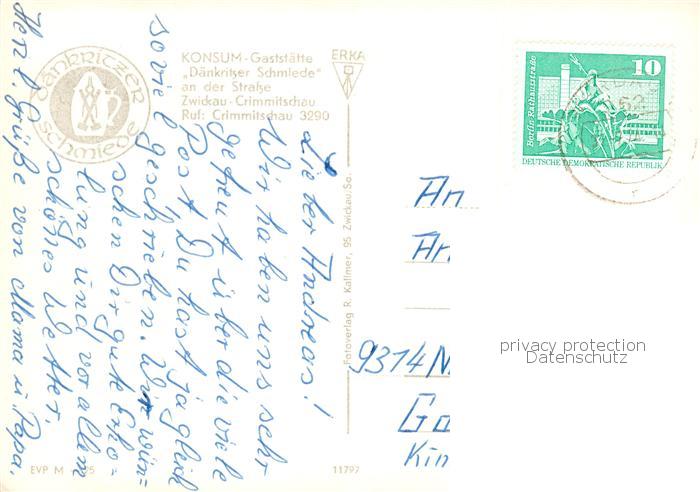 KONSUM-Gaststätte
„Dänkritzer Schmiede"
an der Straße
Zwickau-Crimmitschau
Ruf: Crimmitschau 3290
ERKA
DÄNKRITZER
SCHMIEDE
Lieber Andreas!
Wir haben uns sehr
gefreut über die viele
Post. Du hast ja gleich
soviel geschrieben. Wir wün=
schen Dir gute Erho=
lung und vor allem
schönes Wetter.
Herzl. Grüße von Mama u. Papa.
Fotoverlag R. Kallmer, 95 Zwickau/Sa.
EVP M
11797
10
Berlin, Rathausstraße
DEUTSCHE DEMOKRATISCHE REPUBLIK
An
An
9314 N
Go
Kin
privacy protection
Datenschutz